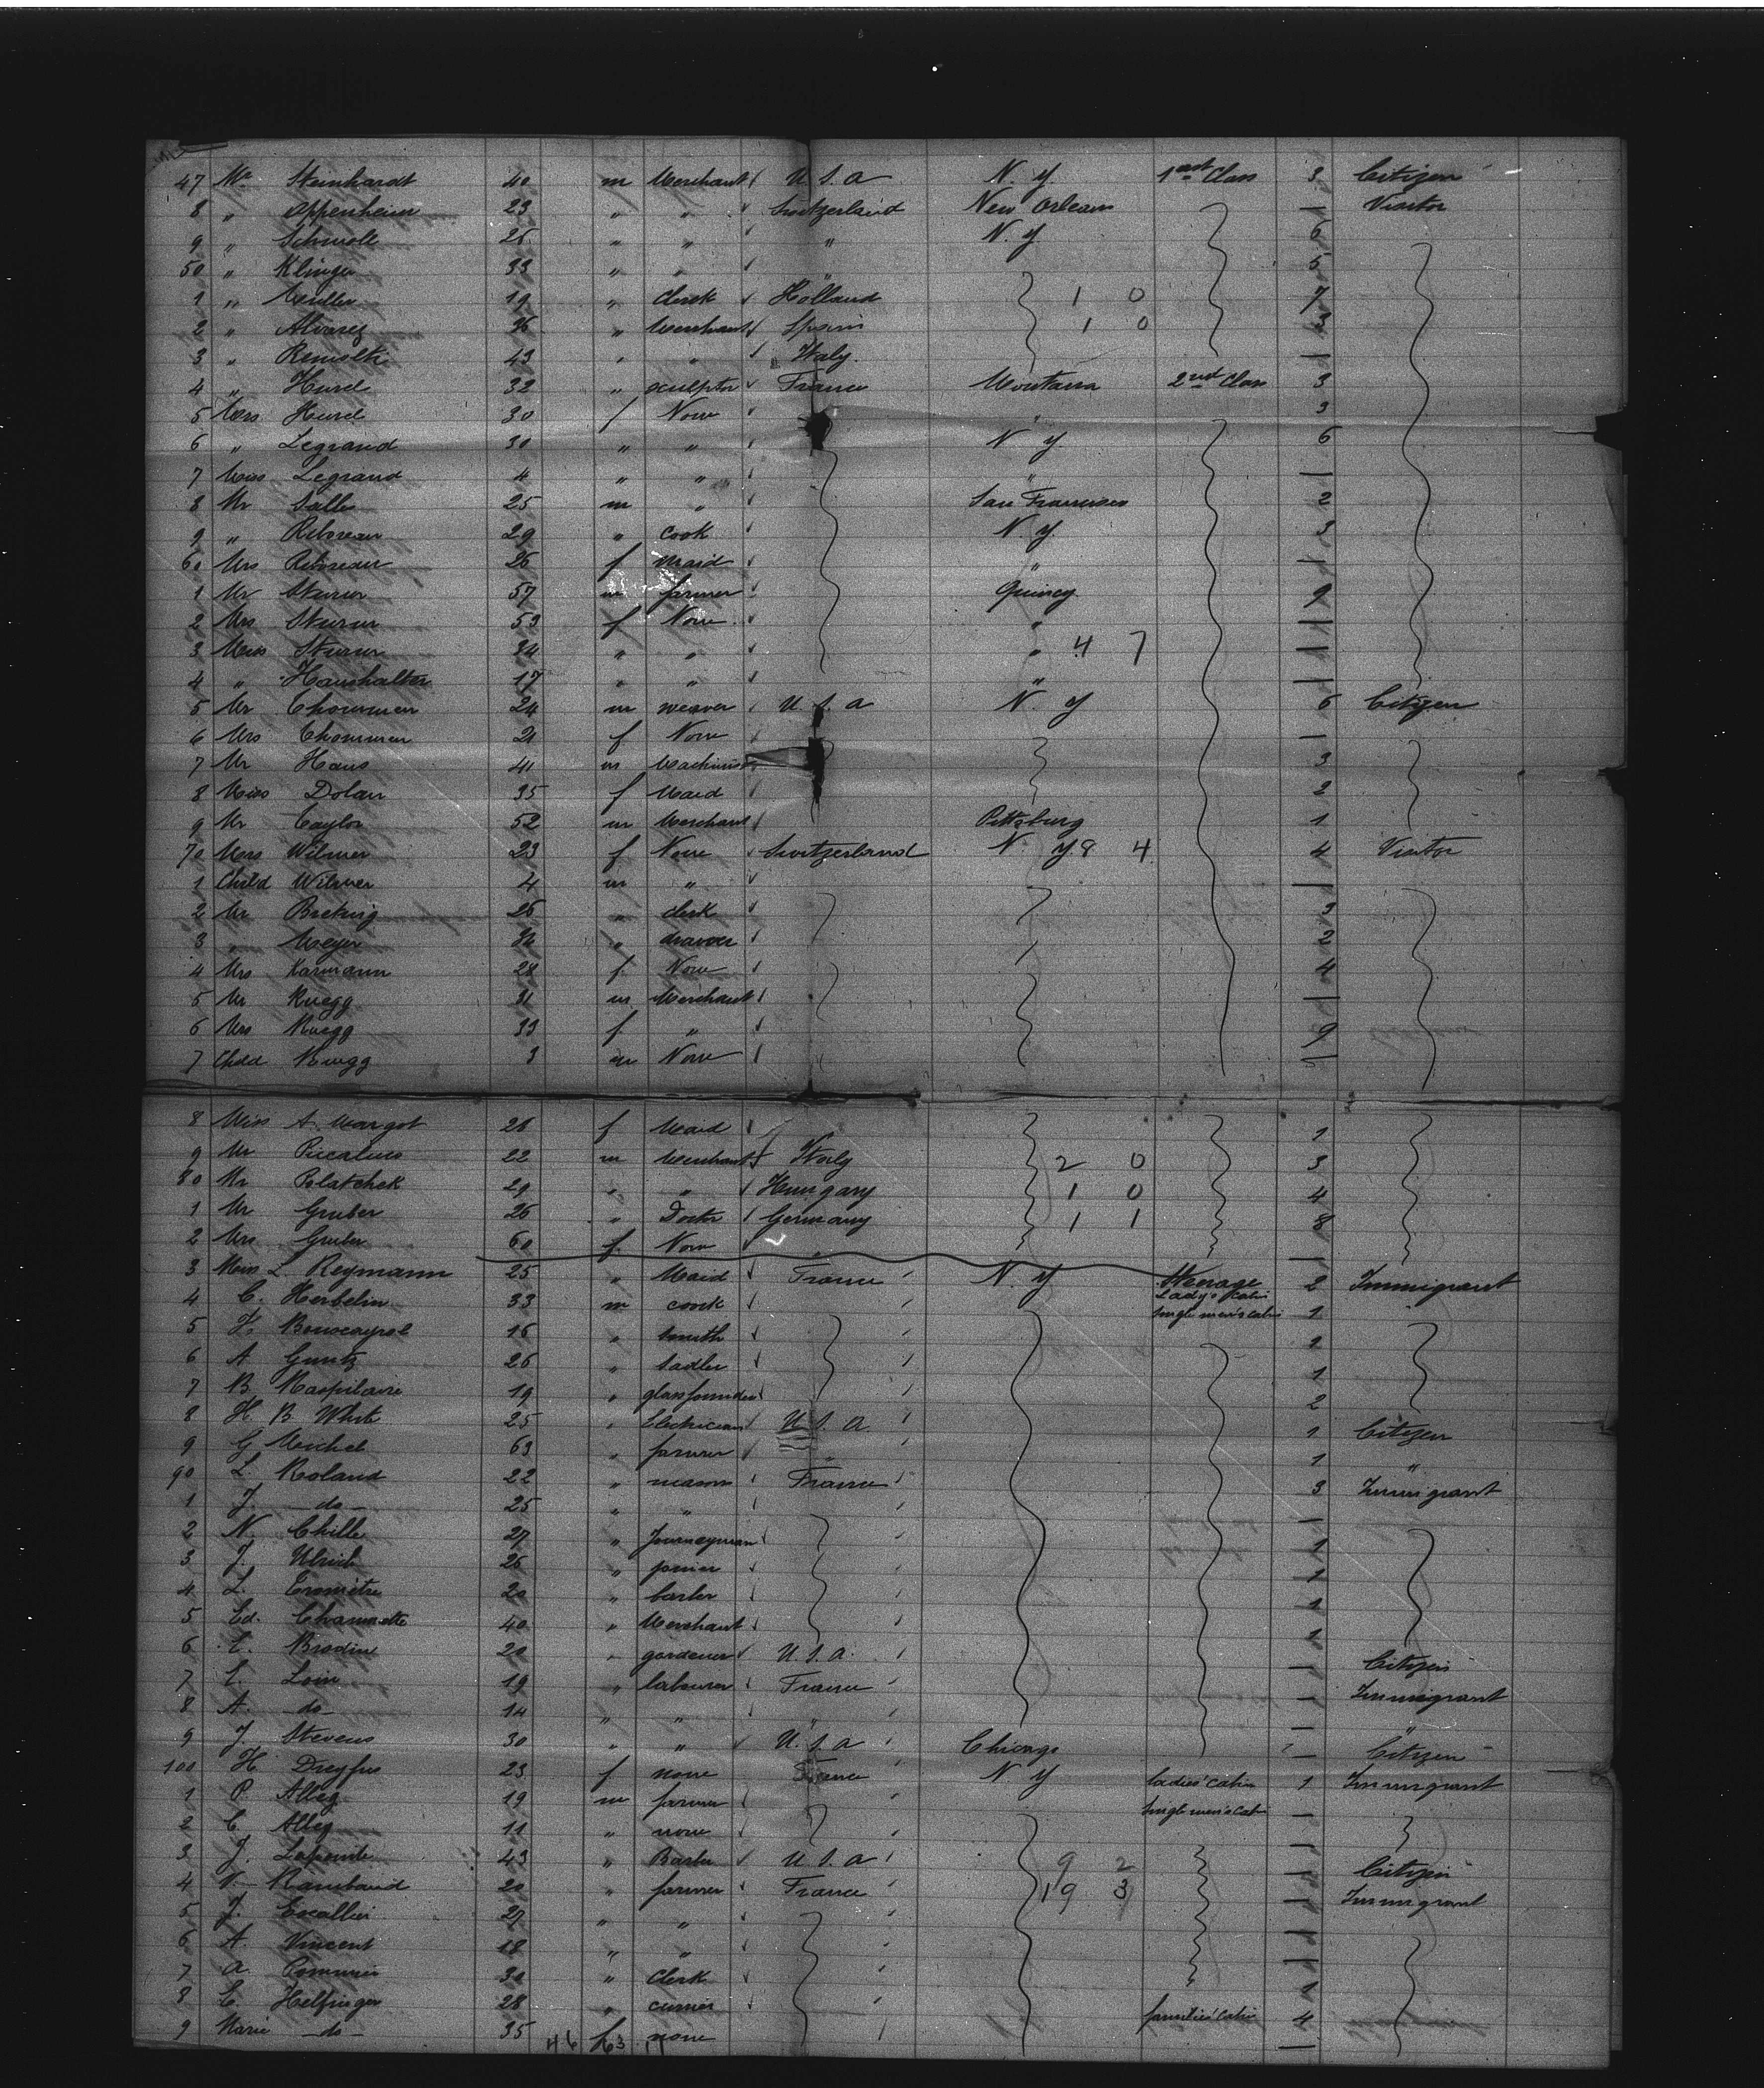 47 Mr Steinhardt 40 m Merchant U.S.a N.Y. 1st Class 3 Citizen
8 " Oppenheim 23 " " Switzerland New Orleans — Visitor
9 " Schmoll 26 " " " N.Y. 6
50 " Klinger 33 " " " 5
1 " Muller 19 " clerk Holland 1 0 7
2 " Alvarez 36 " Merchant Spain 1 0
3 " 43 " " Italy —
4 " Hurel 32 " sculptor France Montana 2nd Class 3
5 Mrs Hurel 30 f None " 3
6 " Legrand 30 " " N.Y. 6
7 Miss Legrand 4 " " " —
8 Mr Salles 25 m " San Francisco 2
9 " 29 " cook N.Y. 3
60 Mrs 26 f Maid " —
1 Mr 57 m farmer Quincy 9
2 Mrs 53 f None " —
3 Miss 24 " " " 4 7 —
4 " Haushalter 17 " " " —
5 Mr Chommen 24 m weaver U.S.a N.Y 6 Citizen
6 Mrs Chommen 21 f None —
7 Mr Haus 41 m Machinist 3
8 Miss Dolan 35 f Maid 2
9 Mr Caylor 52 m Merchant Pittsburg 1
70 Mrs Wilmer 23 f None Switzerland N.Y 8 4 4 Visitor
1 Child Wilmer 4 m " —
2 Mr 26 " clerk 3
3 " Meyer 32 " drawer 2
4 Mrs Karmann 28 f None 4
5 Mr Ruegg 31 m Merchant —
6 Mrs Ruegg 33 f " 9
7 Child Ruegg 3 m None —
8 Miss A. Margot 26 f Maid 1
9 Mr 22 m Merchant Italy 2 0 3
80 Mr Polatchek 29 " " Hungary 1 0 4
1 Mr Gruber 26 " Doctor Germany 1 1 8
2 Mrs Gruber 60 f None " —
3 Miss L. Reymann 25 " Maid France N.Y Steerage Lady's Cabin 2 Immigrant
4 C. Herbelin 33 m cook Single men's cabin 1
5 16 " smith 1
6 A Guntz 26 " sadler 1
7 B 19 " glassfounder 2
8 H. B. White 25 " Electrician U.S.a. 1 Citizen
9 G Michel 63 " farmer " 1 "
90 L. Roland 22 " mason France 3 Immigrant
1 J. —do— 25 " " —
2 N. Chille 27 " Journeyman 1
3 J. Ulrich 26 " joiner 1
4 L. 20 " barber 1
5 Ed. 40 " Merchant 1
6 E. Brodin 20 " gardener U.S.a. — Citizen
7 E. Loin 19 " labourer France — Immigrant
8 A. —do— 14 " " " — "
9 J. Stevens 30 " " U.S.a Chicago — Citizen
100 H Dreyfus 23 f none France N.Y ladies' Cabin 1 Immigrant
1 P. Alleg 19 m farmer Single men's Cab —
2 C. Alleg 11 " none —
3 J. Lapointe 43 " Barber U.S.a 9 2 — Citizen
4 V. Rambaud 20 " farmer France 19 3 — Immigrant
5 J. Escallier 27 " " —
6 A. Vincent 18 " " —
7 a. 30 " Clerk 1
8 E. Helfinger 28 " currier families' Cabin 4
9 Marie —do— 35 f none —
46 63 11